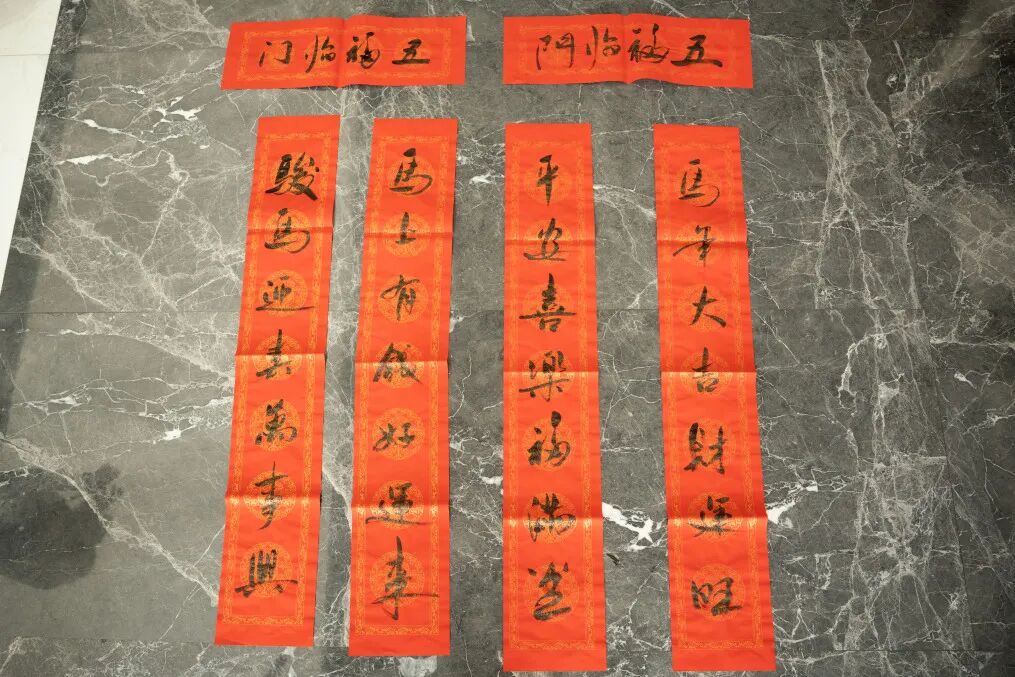 五福临門
馬年大吉財运旺
平安喜樂福满堂
五福临门
馬上有成好運来
駿馬迎春萬事興